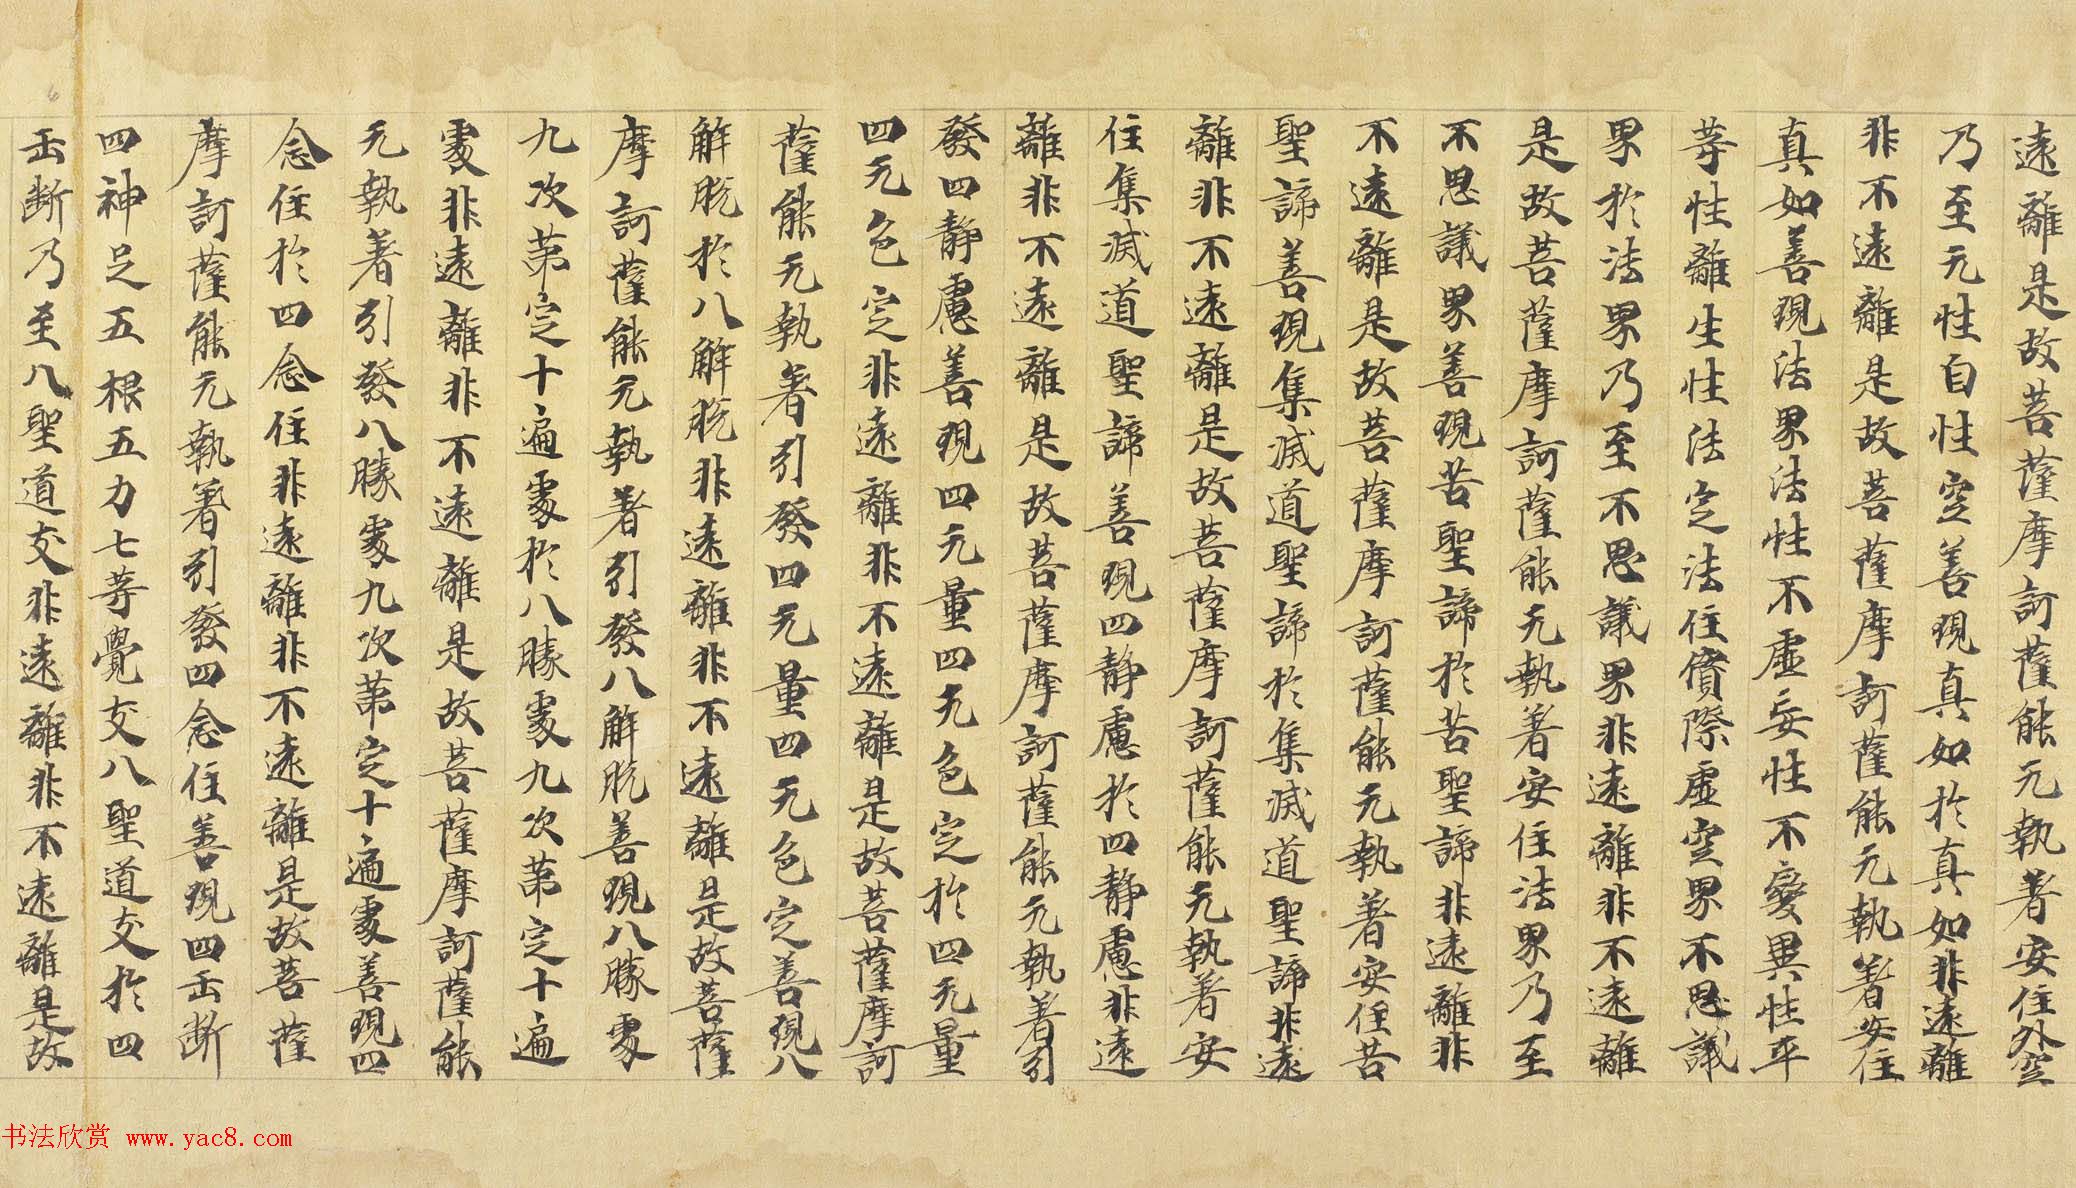 遠離是故菩薩摩訶薩能无執著安住外空
乃至无性自性空善現真如於真如非遠離
非不遠離是故菩薩摩訶薩能无執著安住
真如善現法界法性不虛妄性不變異性平
等性離生性法定法住實際虛空界不思議
界於法界乃至不思議界非遠離非不遠離
是故菩薩摩訶薩能无執著安住法界乃至
不思議界善現苦聖諦於苦聖諦非遠離非
不遠離是故菩薩摩訶薩能无執著安住苦
聖諦善現集滅道聖諦於集滅道聖諦非遠
離非不遠離是故菩薩摩訶薩能无執著安
住集滅道聖諦善現四靜慮於四靜慮非遠
離非不遠離是故菩薩摩訶薩能无執著引
發四靜慮善現四无量四无色定於四无量
四无色定非遠離非不遠離是故菩薩摩訶
薩能无執著引發四无量四无色定善現八
解脫於八解脫非遠離非不遠離是故菩薩
摩訶薩能无執著引發八解脫善現八勝處
九次第定十遍處於八勝處九次第定十遍
處非遠離非不遠離是故菩薩摩訶薩能
无執著引發八勝處九次第定十遍處善現四
念住於四念住非遠離非不遠離是故菩薩
摩訶薩能无執著引發四念住善現四正斷
四神足五根五力七等覺支八聖道支於四
正斷乃至八聖道支非遠離非不遠離是故
书法欣赏 www.yac8.com